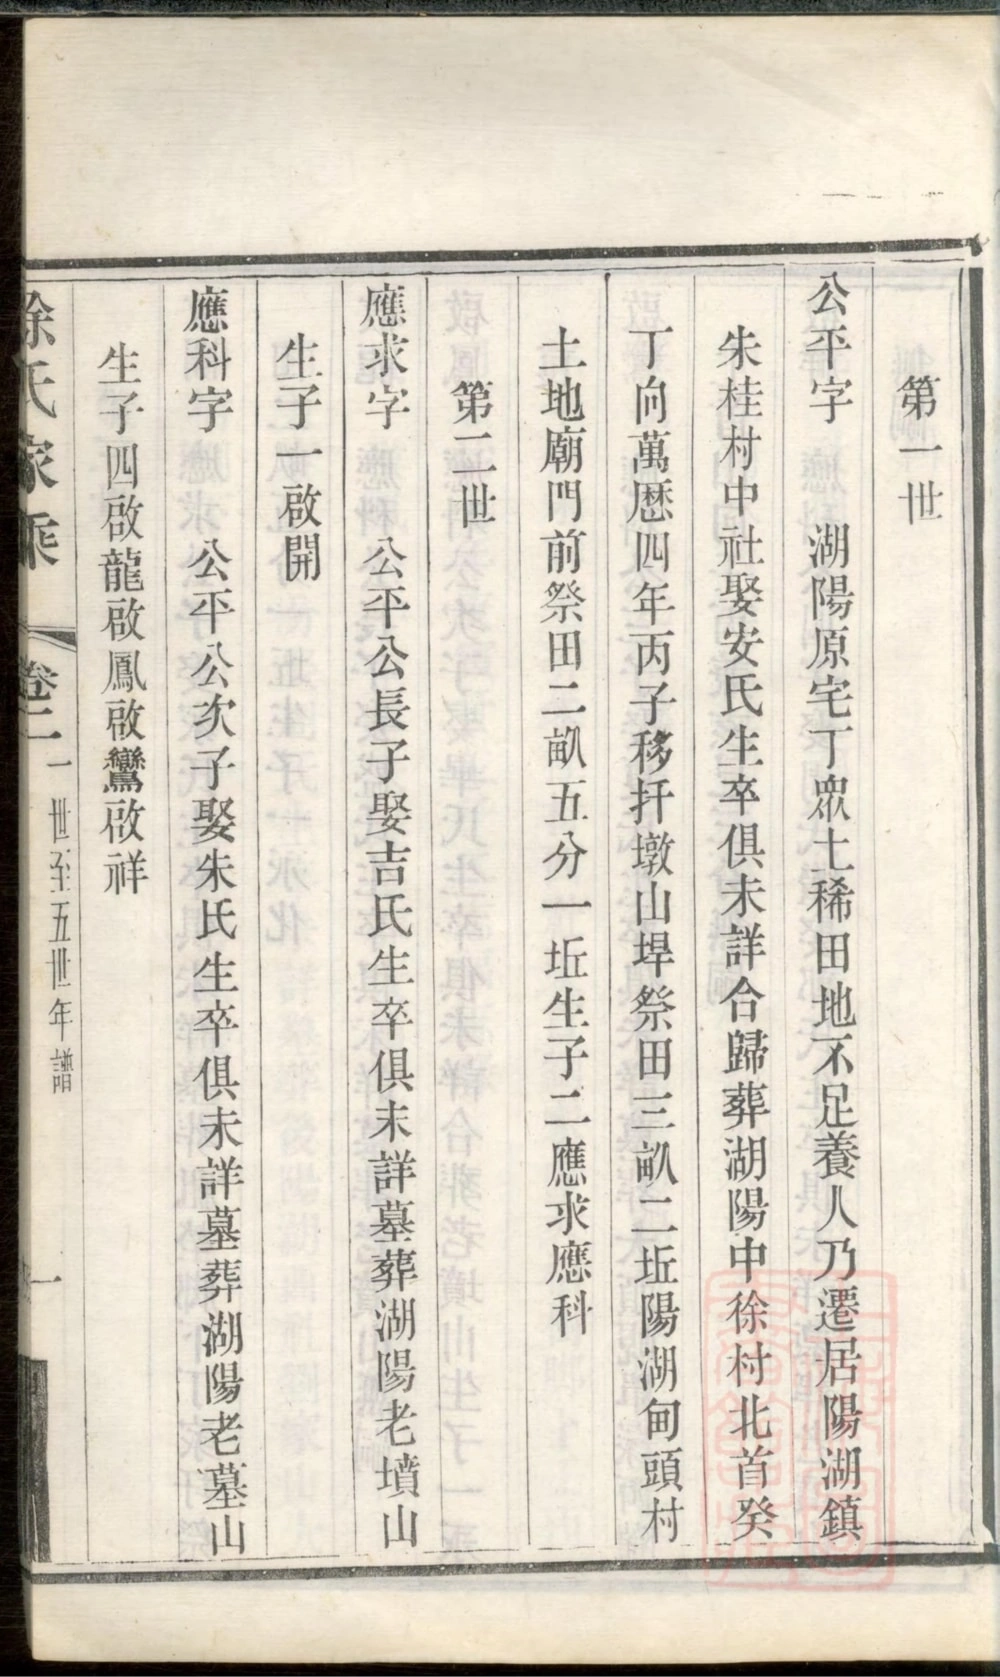 第一世
公平字　湖陽原宅丁眾土稀田地不足養人乃遷居陽湖鎮
朱桂村中社娶安氏生卒俱未詳合歸葬湖陽中徐村北首癸
丁向萬歷四年丙子移扦墩山垾祭田三畝二坵陽湖甸頭村
土地廟門前祭田二畝五分一坵生子二應求應科
第二世
應求字　公平公長子娶吉氏生卒俱未詳墓葬湖陽老墳山
生子一啟開
應科字　公平公次子娶朱氏生卒俱未詳墓葬湖陽老墓山
生子四啟龍啟鳳啟鸞啟祥
徐氏家乘　卷二　一世至五世年譜　一